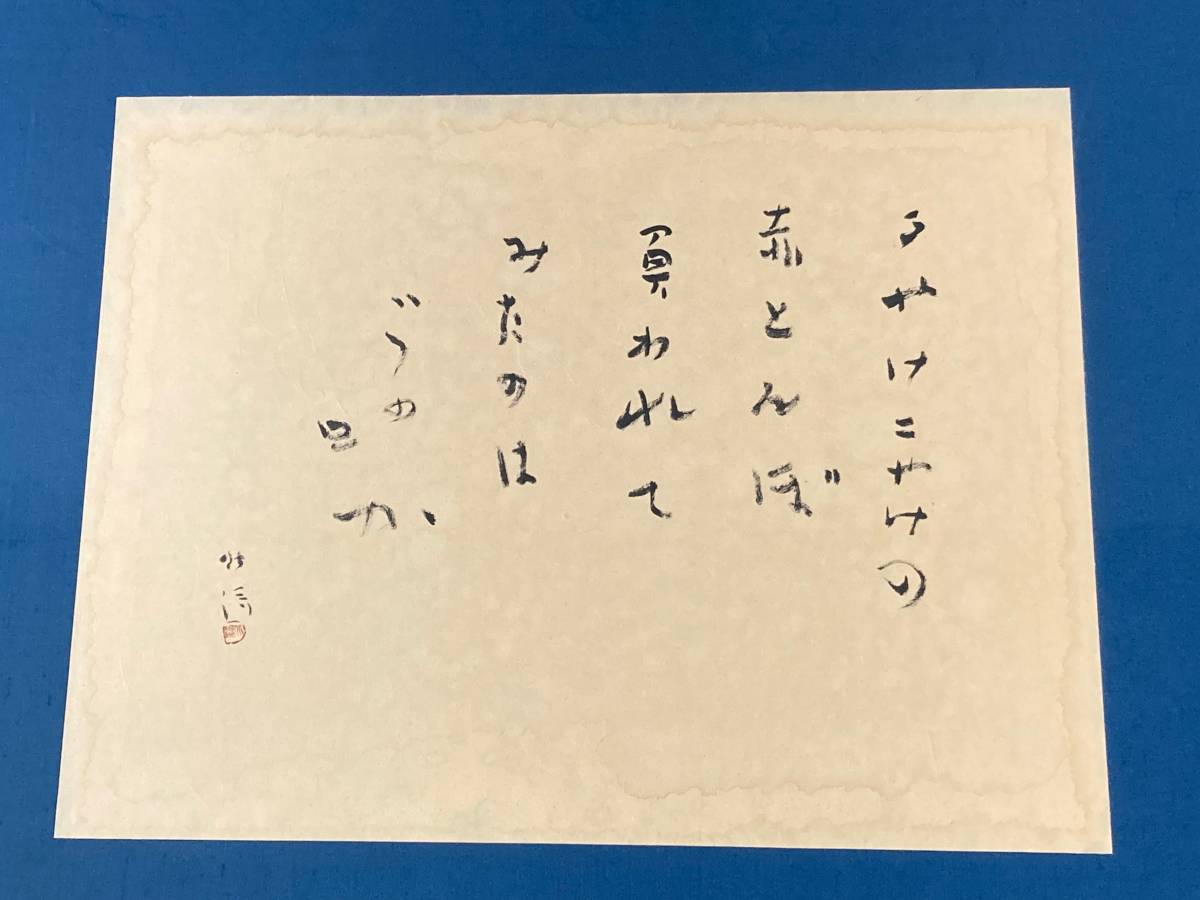 夕やけこやけの
赤とんぼ
負われて
みたのは
いつの
日か